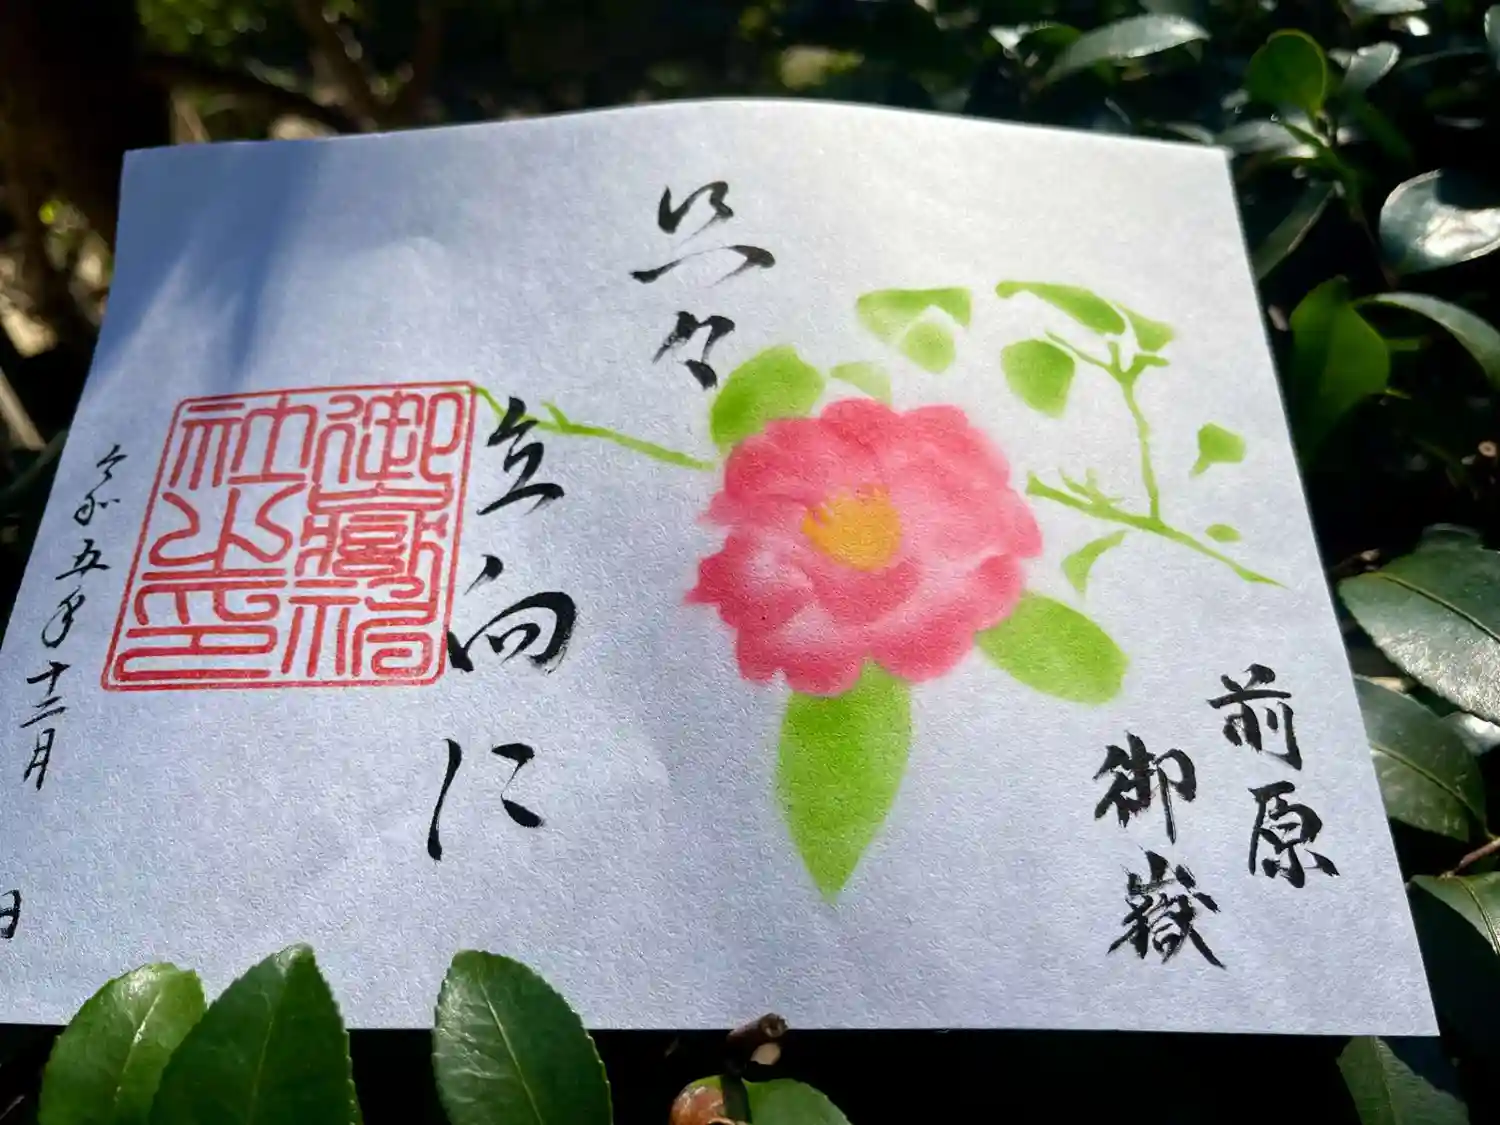 前原
御嶽
立向に
御嶽神
社之印
令和五年十二月
日